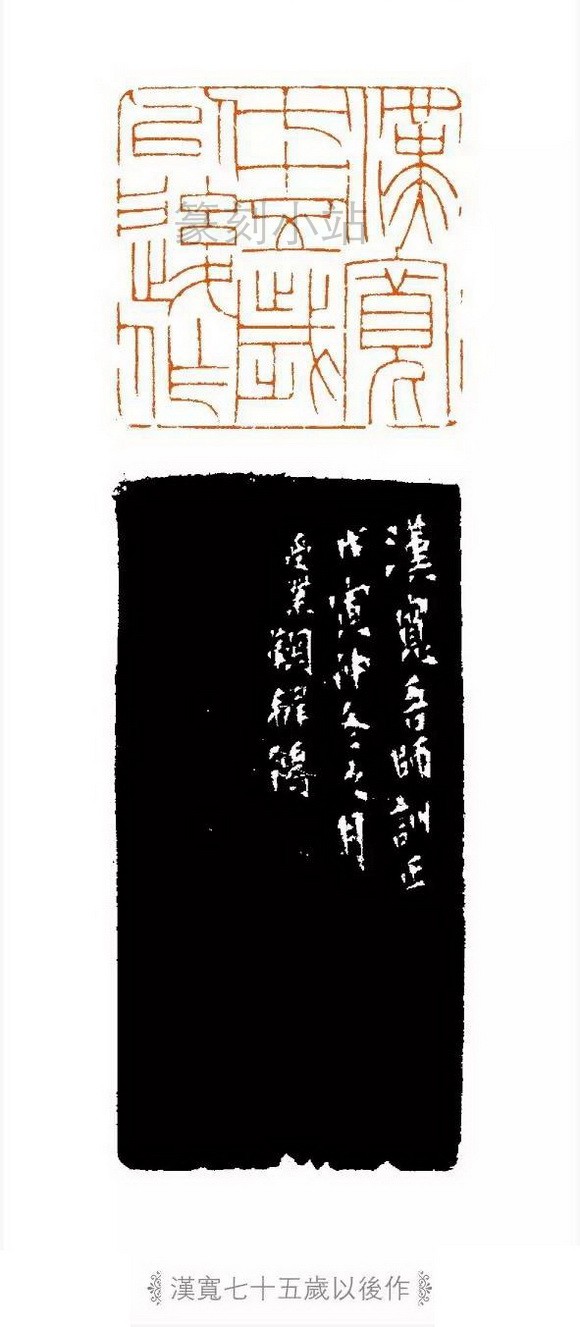 漢寬七十五歲以後作
篆刻小站
漢寬吾師訓正
戊寅仲冬之月
受業顧耀
漢寬七十五歲以後作